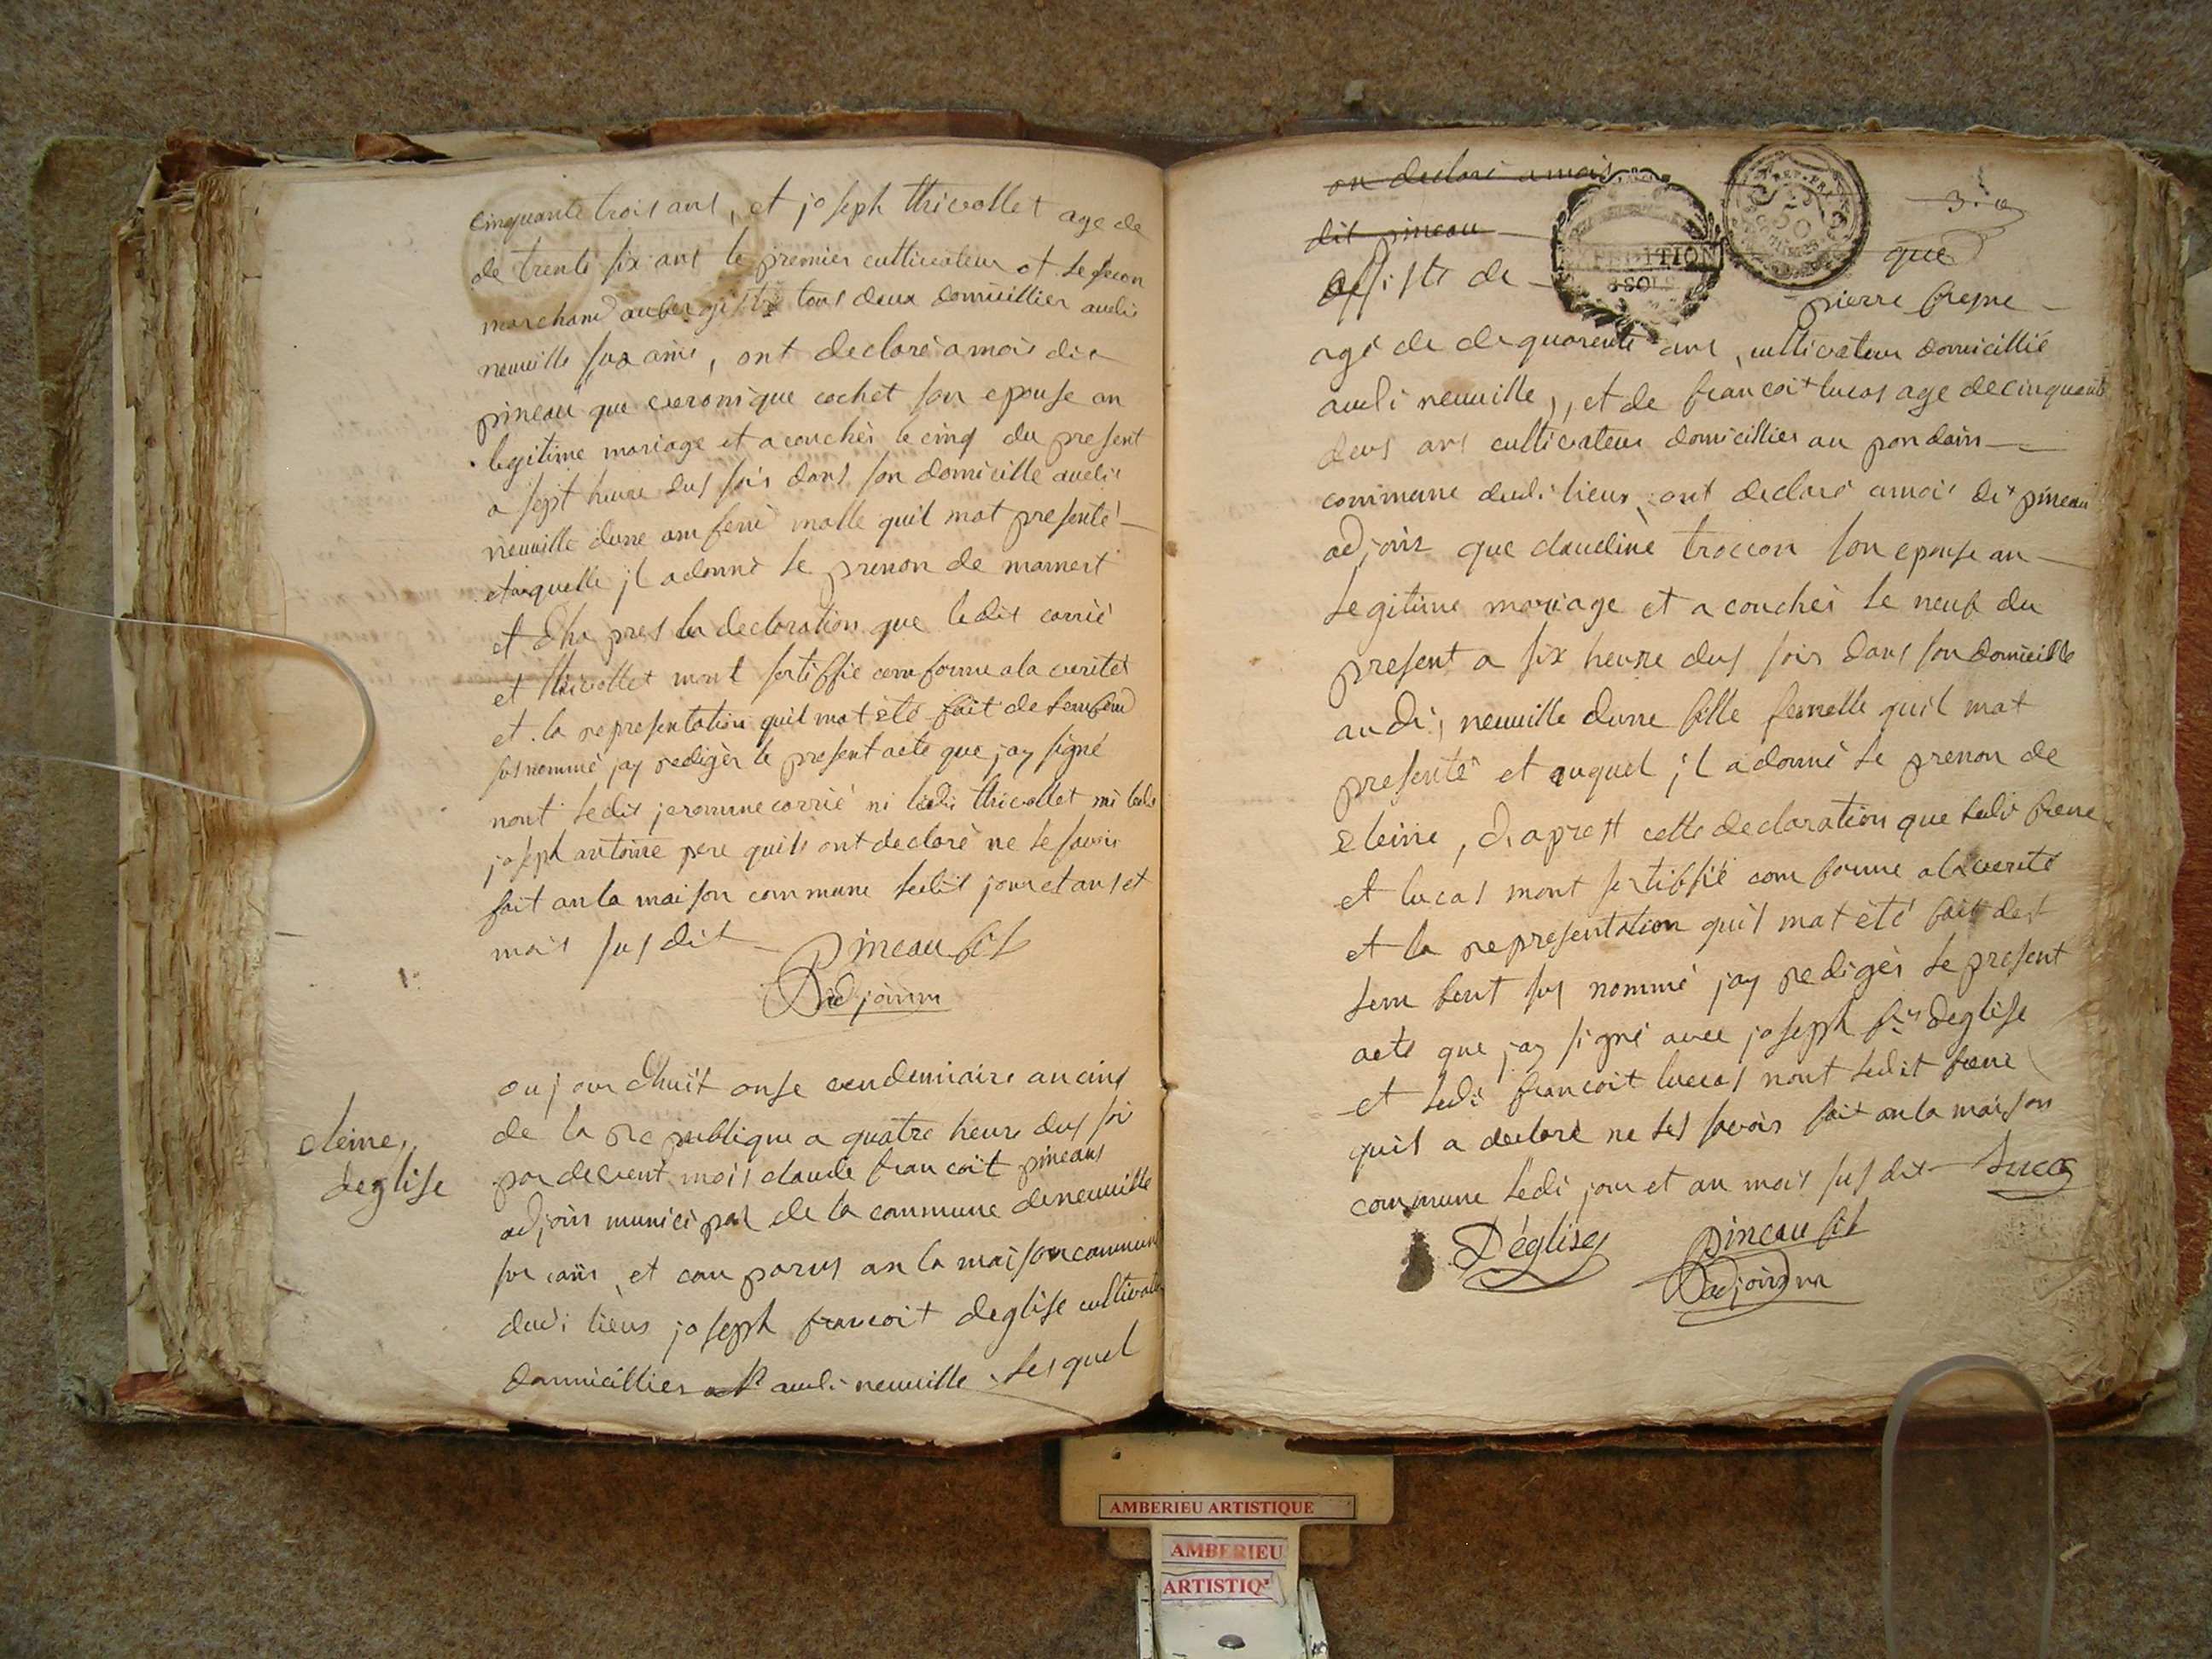 cinquante trois ans, et joseph thivollet age de
de trente six ans le premier cultivateur et le secon
marchand aubergiste tous deux domicillier audi
neuville sur ains, ont declaré a mois dis
pineau que veronique cochet son epouse an
legitime mariage et a couchér le cinq du present
a sept heure dus soir dans son domicille audit
neuville dunne anfenn malle quil mat presenté
et auquelle jl adonné le prenon de mamert
et dha pres la declaration que ledit carrié
et thivollet mont sertiffié com forme a la verité
et la representation quil mat été fait de
susnommé jay redigér le present acte que jay signé
nont ledit jeromme carrié ni ledi thivollet ni ledi
joseph antoine pere quils ont declaré ne le savoir
fait an la maison commune ledit jour et ans et
mois susdit
Pineau fils
adjoinm
cleine,
deglise
oujourdhuit onse vendemiaire an cinq
de la republique a quatre heure dus soi
par devent mois claude francoit pineaus
adjoin municipal de la commune de neuville
sur ains et comparus an la maison commune
dudi lieus joseph francoit deglise cultivate
dommicillier audi neuville lesquel
on declaré a mois
dit pineau
REP. FRA.
50
CENTIMES
EXPEDITION
3 SOLS
que
assiste de
pierre fresne
agé de de quarente ans, cultivateur domicillié
audi neuville, et de francoit lucas age de cinquante
deus ans cultivateur domicillier au pondain
commune dudi lieux, ont declaré amois dit pineau
adjoin que claudine troccon son epouse an
legitime mariage et a couchér le neuf du
present a six heure dus soir dans son domicille
audi neuville dunne fille femelle quil mat
presenté et auquel jl a donné le prenon de
cleine, dhaprest cette declaration que ledi frene
et lucas mont sertiffié com forme a la verité
et la representation quil mat été fait dest
lem fent sus nommé jay redigér le present
acte que jay signé avec joseph fois deglise
et ledi francoit luccas nont ledit frene
quil a declaré ne les savoir fait an la maison
commune ledi jour et an mois susdit
Lucas
Déglise
Pineau fils
adjoinm
AMBERIEU ARTISTIQUE
AMBERIEU
ARTISTIQ